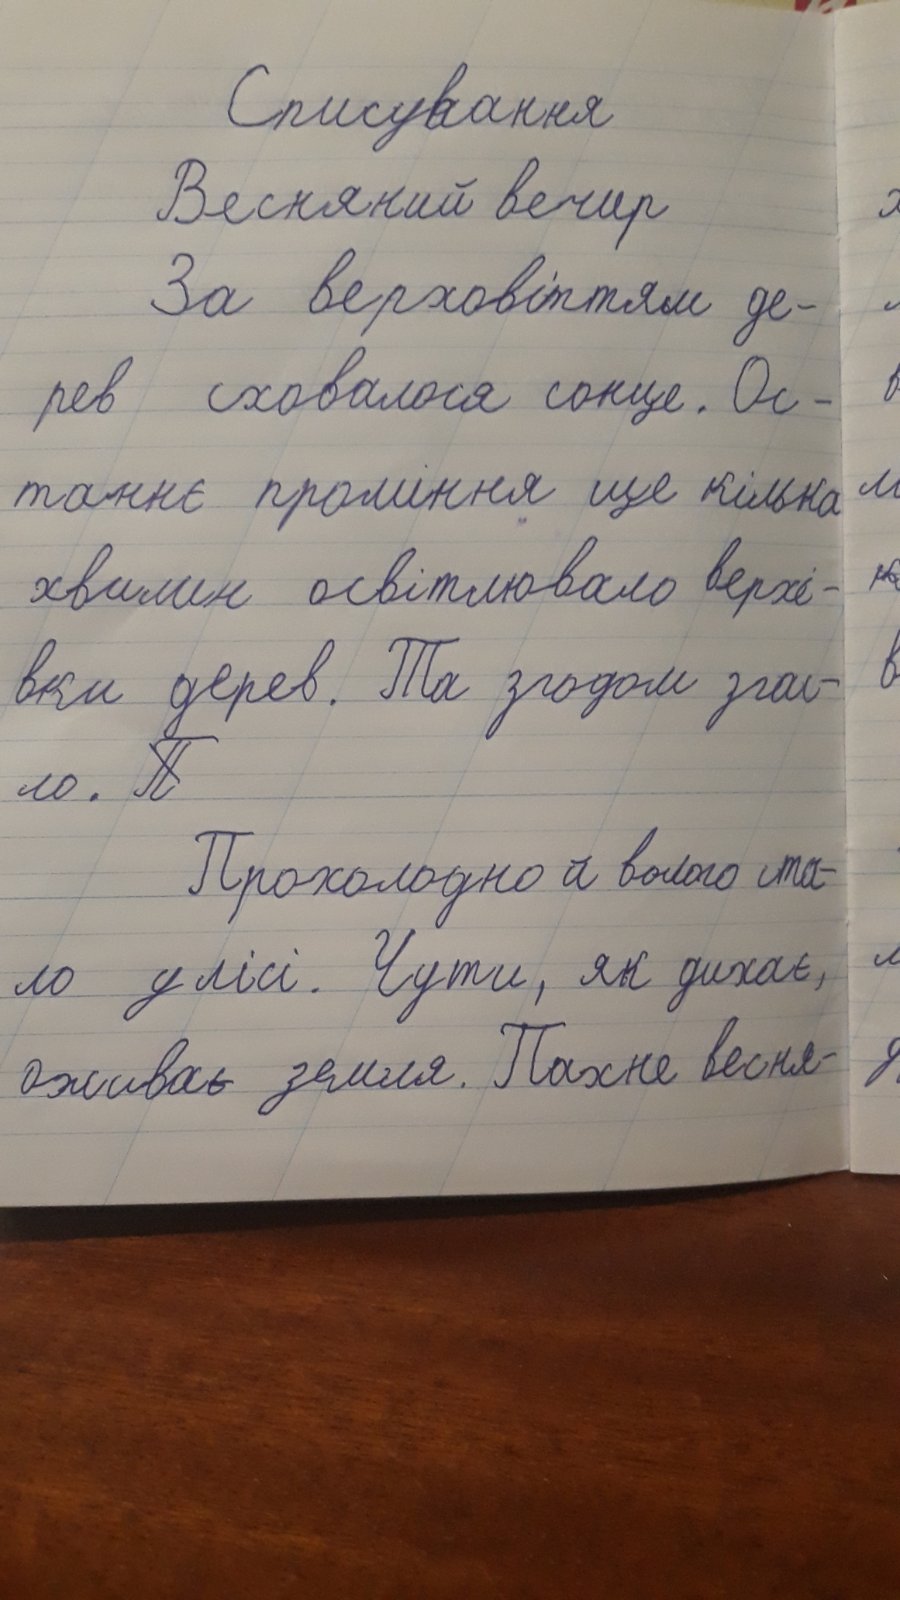 Списування
Весняний вечир
За верховіттям де-
рев сховалося сонце. Ос-
таннє проміння ще кілька
хвилин освітлювало верхі-
вки дерев. Та згодом згас-
ло. П
Прохолодно й волого ста-
ло у лісі. Чути, як дихає,
оживає земля. Пахне весня-